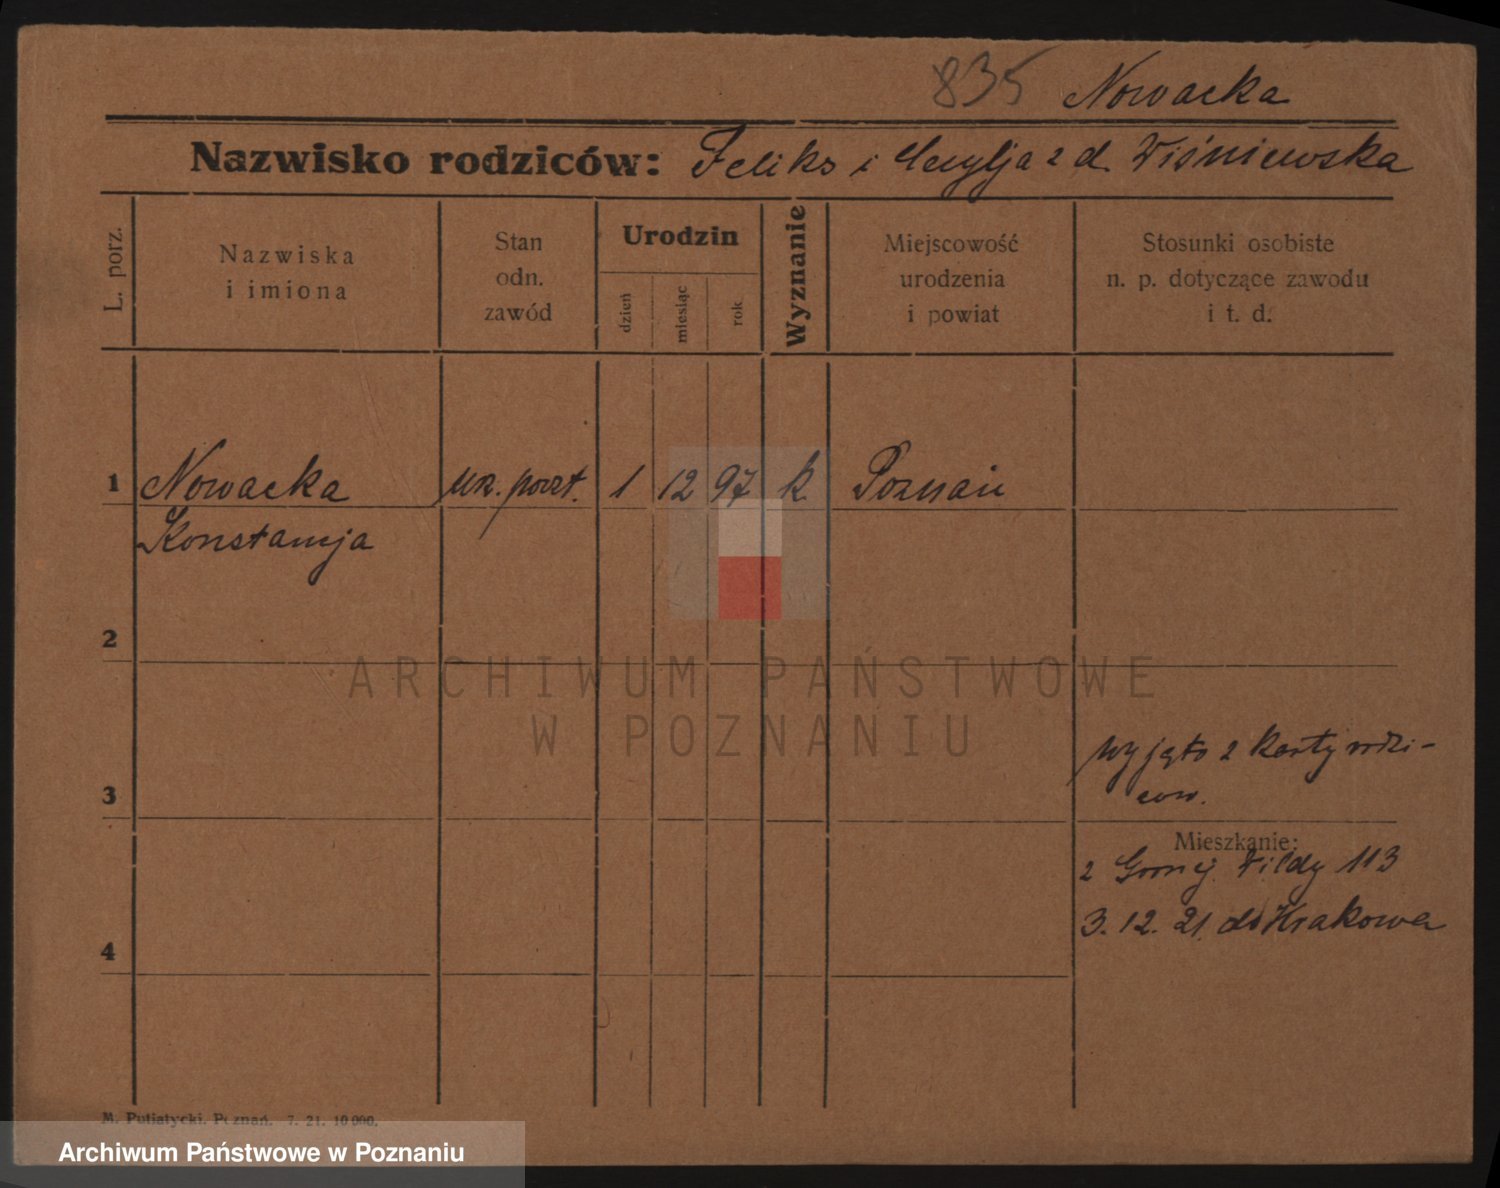 835 Nowacka
Nazwisko rodziców: Feliks i z d. Wiśniewska
L. porz.
Nazwiska
i imiona
Stan
odn.
zawód
Urodzin
dzień
miesiąc
rok
Wyznanie
Miejscowość
urodzenia
i powiat
Stosunki osobiste
n. p. dotyczące zawodu
i t. d.
1 Nowacka urz. poczt. 1 12 97 k Poznań
Konstancja
2
ARCHIWUM PAŃSTWOWE
W POZNANIU
wyjęto z karty rodzi-
ców.
3
Mieszkanie:
z Gornej Wildy 113
3. 12. 21. do Krakowa
4
M. Putiatycki, Poznań. 7. 21. 10 000.
Archiwum Państwowe w Poznaniu